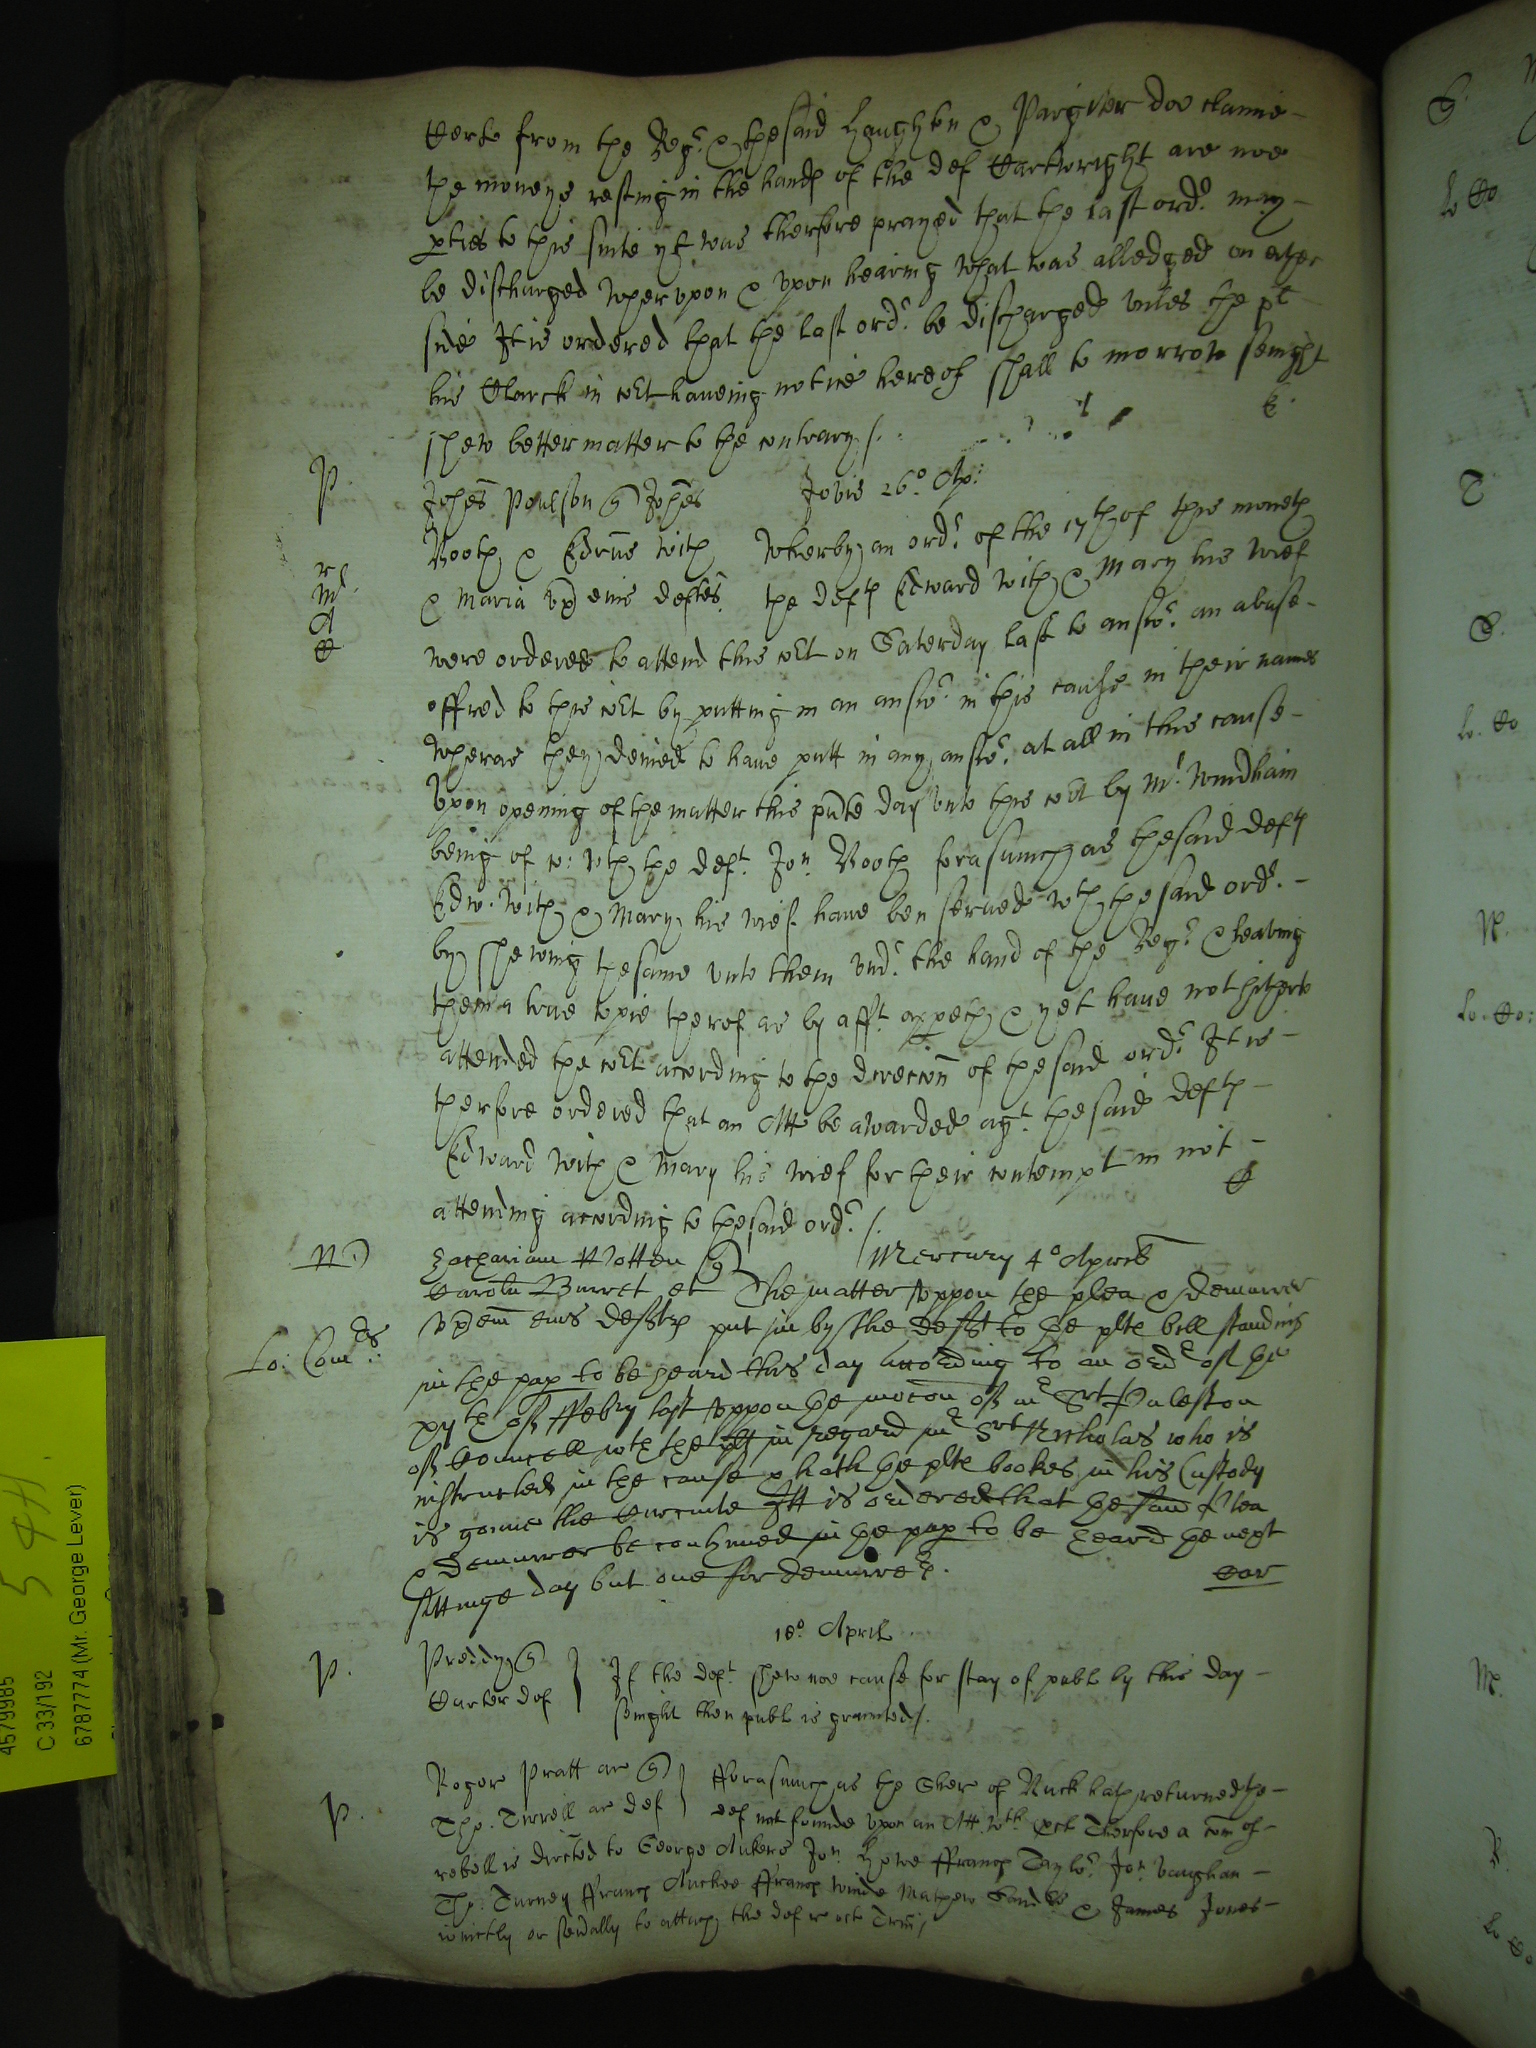 from the Reg: & the said Haughton & Pargiter doe clayme
the moneys resting in the hands of the def Cartwright are noe
pties to this suite yt was therfore prayed that the last ord: may
be discharged wherupon & upon hearing what was alledged on ether
side It is ordered that the last ord: be discharged unles the plt
his Clarck in cort haveing notice hereof shall to morrow senight
shew better matter to the contrary /.
P. Johes Poulson q Johes Jovis 26o Ap:
Booth & Edrus With Wherby an ord: of the 17th of this moneth
& Maria ux eius deftes the defts Edward With & Mary his wief
were ordered to attend this cort on Saterday last to answ: an abuse
offred to this cort by putting in an answ: in this cause in their names
wheras they denied to have putt in any answ: at all in this cause
Upon opening of the matter this pnte day unto this cort by Mr. Windham
being of co: wth the deft. Jon. Booth forasmuch as the said defts
Edw. With & Mary his wief have ben served wth the said ord:
by shewing the same unto them und: the hand of the Reg: & leaving
them a true copie therof as by afft. appeth & yet have not hitherto
attended the cort according to the direccon of the said ord: It is
therfore ordered that an Att be awarded agt. the said defts
Edward With & Mary his wief for their contempt in not
attending according to the said ord: /.
Zachariam Wotten q Mercury 4o Aprilis
Burret et The matter uppon the plea & demurrer
uxem eius defts put in by the deft to the plts bill standing
in the pap to be heard this day according to an ord: of the
of Febry last uppon the mocon of mr Srt Puleston
of Councell wth the plt in regard mr Srt Nicholas who is
instructed in the cause & hath the plts bookes in his Custody
is gonne the Circuite Itt is ordered that the said Plea
& demurrer be continued in the pap to be heard the next
sittinge day but one for demurrers.
18o April
P. Preddy q If the deft. shew noe cause for stay of publ by this day
Carter def senight then publ is graunted /.
Roger Pratt ar q fforasmuch as the Sher of Buck hath returned the
P. Tho. Tirrell ar def def not founde upon an Att wth Therfore a com of
rebell is directed to George Ankers Jon. Howe ffrancs Taylor Jon. Vaughan
Tho. Turney ffrancs ffrancs Winde Mathew & James Jones
ioinctly or sevally to attach the def Trin /
4579985
C 33/192
6787774 (Mr. George Lever)